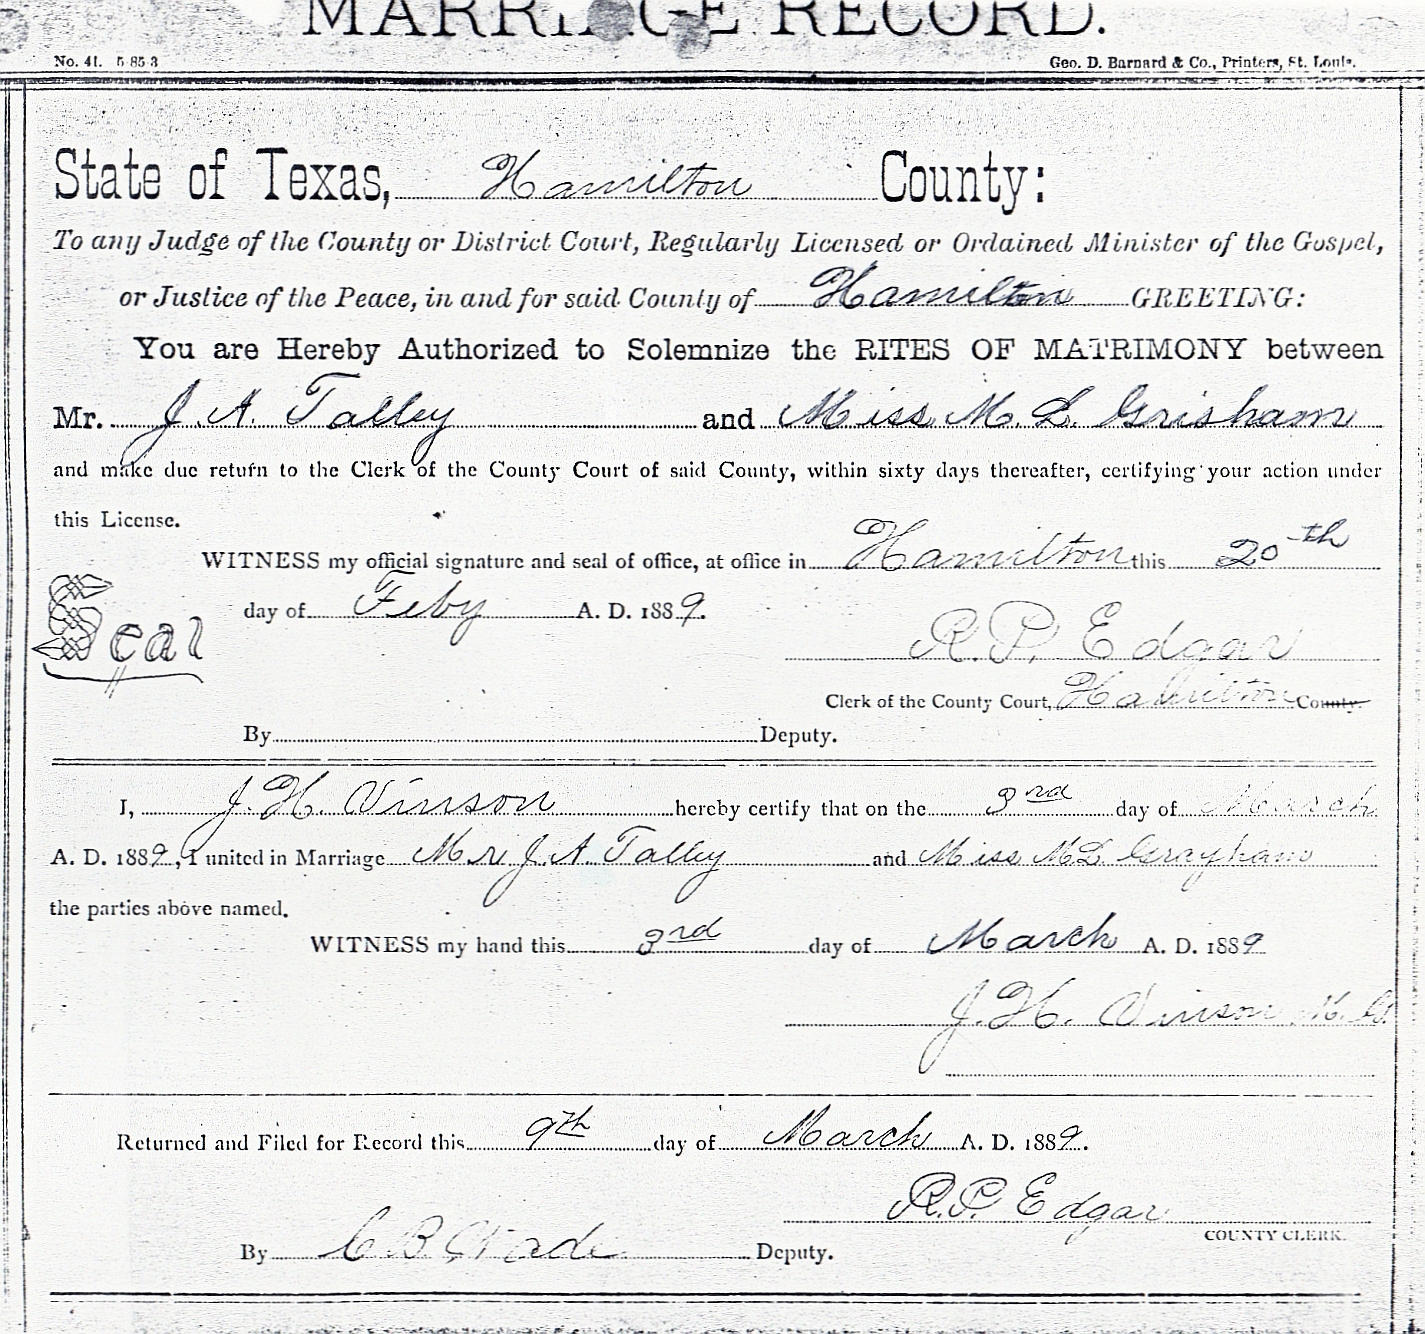 MARRIAGE RECORD.
No. 41. 5-85-3 Geo. D. Barnard & Co., Printers, St. Louis.
State of Texas, Hamilton County:
To any Judge of the County or District Court, Regularly Licensed or Ordained Minister of the Gospel,
or Justice of the Peace, in and for said County of Hamilton GREETING:
You are Hereby Authorized to Solemnize the RITES OF MATRIMONY between
Mr. J. A. Talley and Miss M. L. Grisham
and make due return to the Clerk of the County Court of said County, within sixty days thereafter, certifying your action under
this License.
WITNESS my official signature and seal of office, at office in Hamilton this 20th
day of Feby A. D. 1889.
Seal
R. P. Edgar
Clerk of the County Court, Hamilton County.
By Deputy.
I, J. H. Vinson hereby certify that on the 3rd day of March
A. D. 1889, I united in Marriage Mr J. A. Talley and Miss M L Grayham
the parties above named.
WITNESS my hand this 3rd day of March A. D. 1889
J. H. Vinson M. G.
Returned and Filed for Record this 9th day of March A. D. 1889.
R. P. Edgar
COUNTY CLERK.
By C B Wade Deputy.